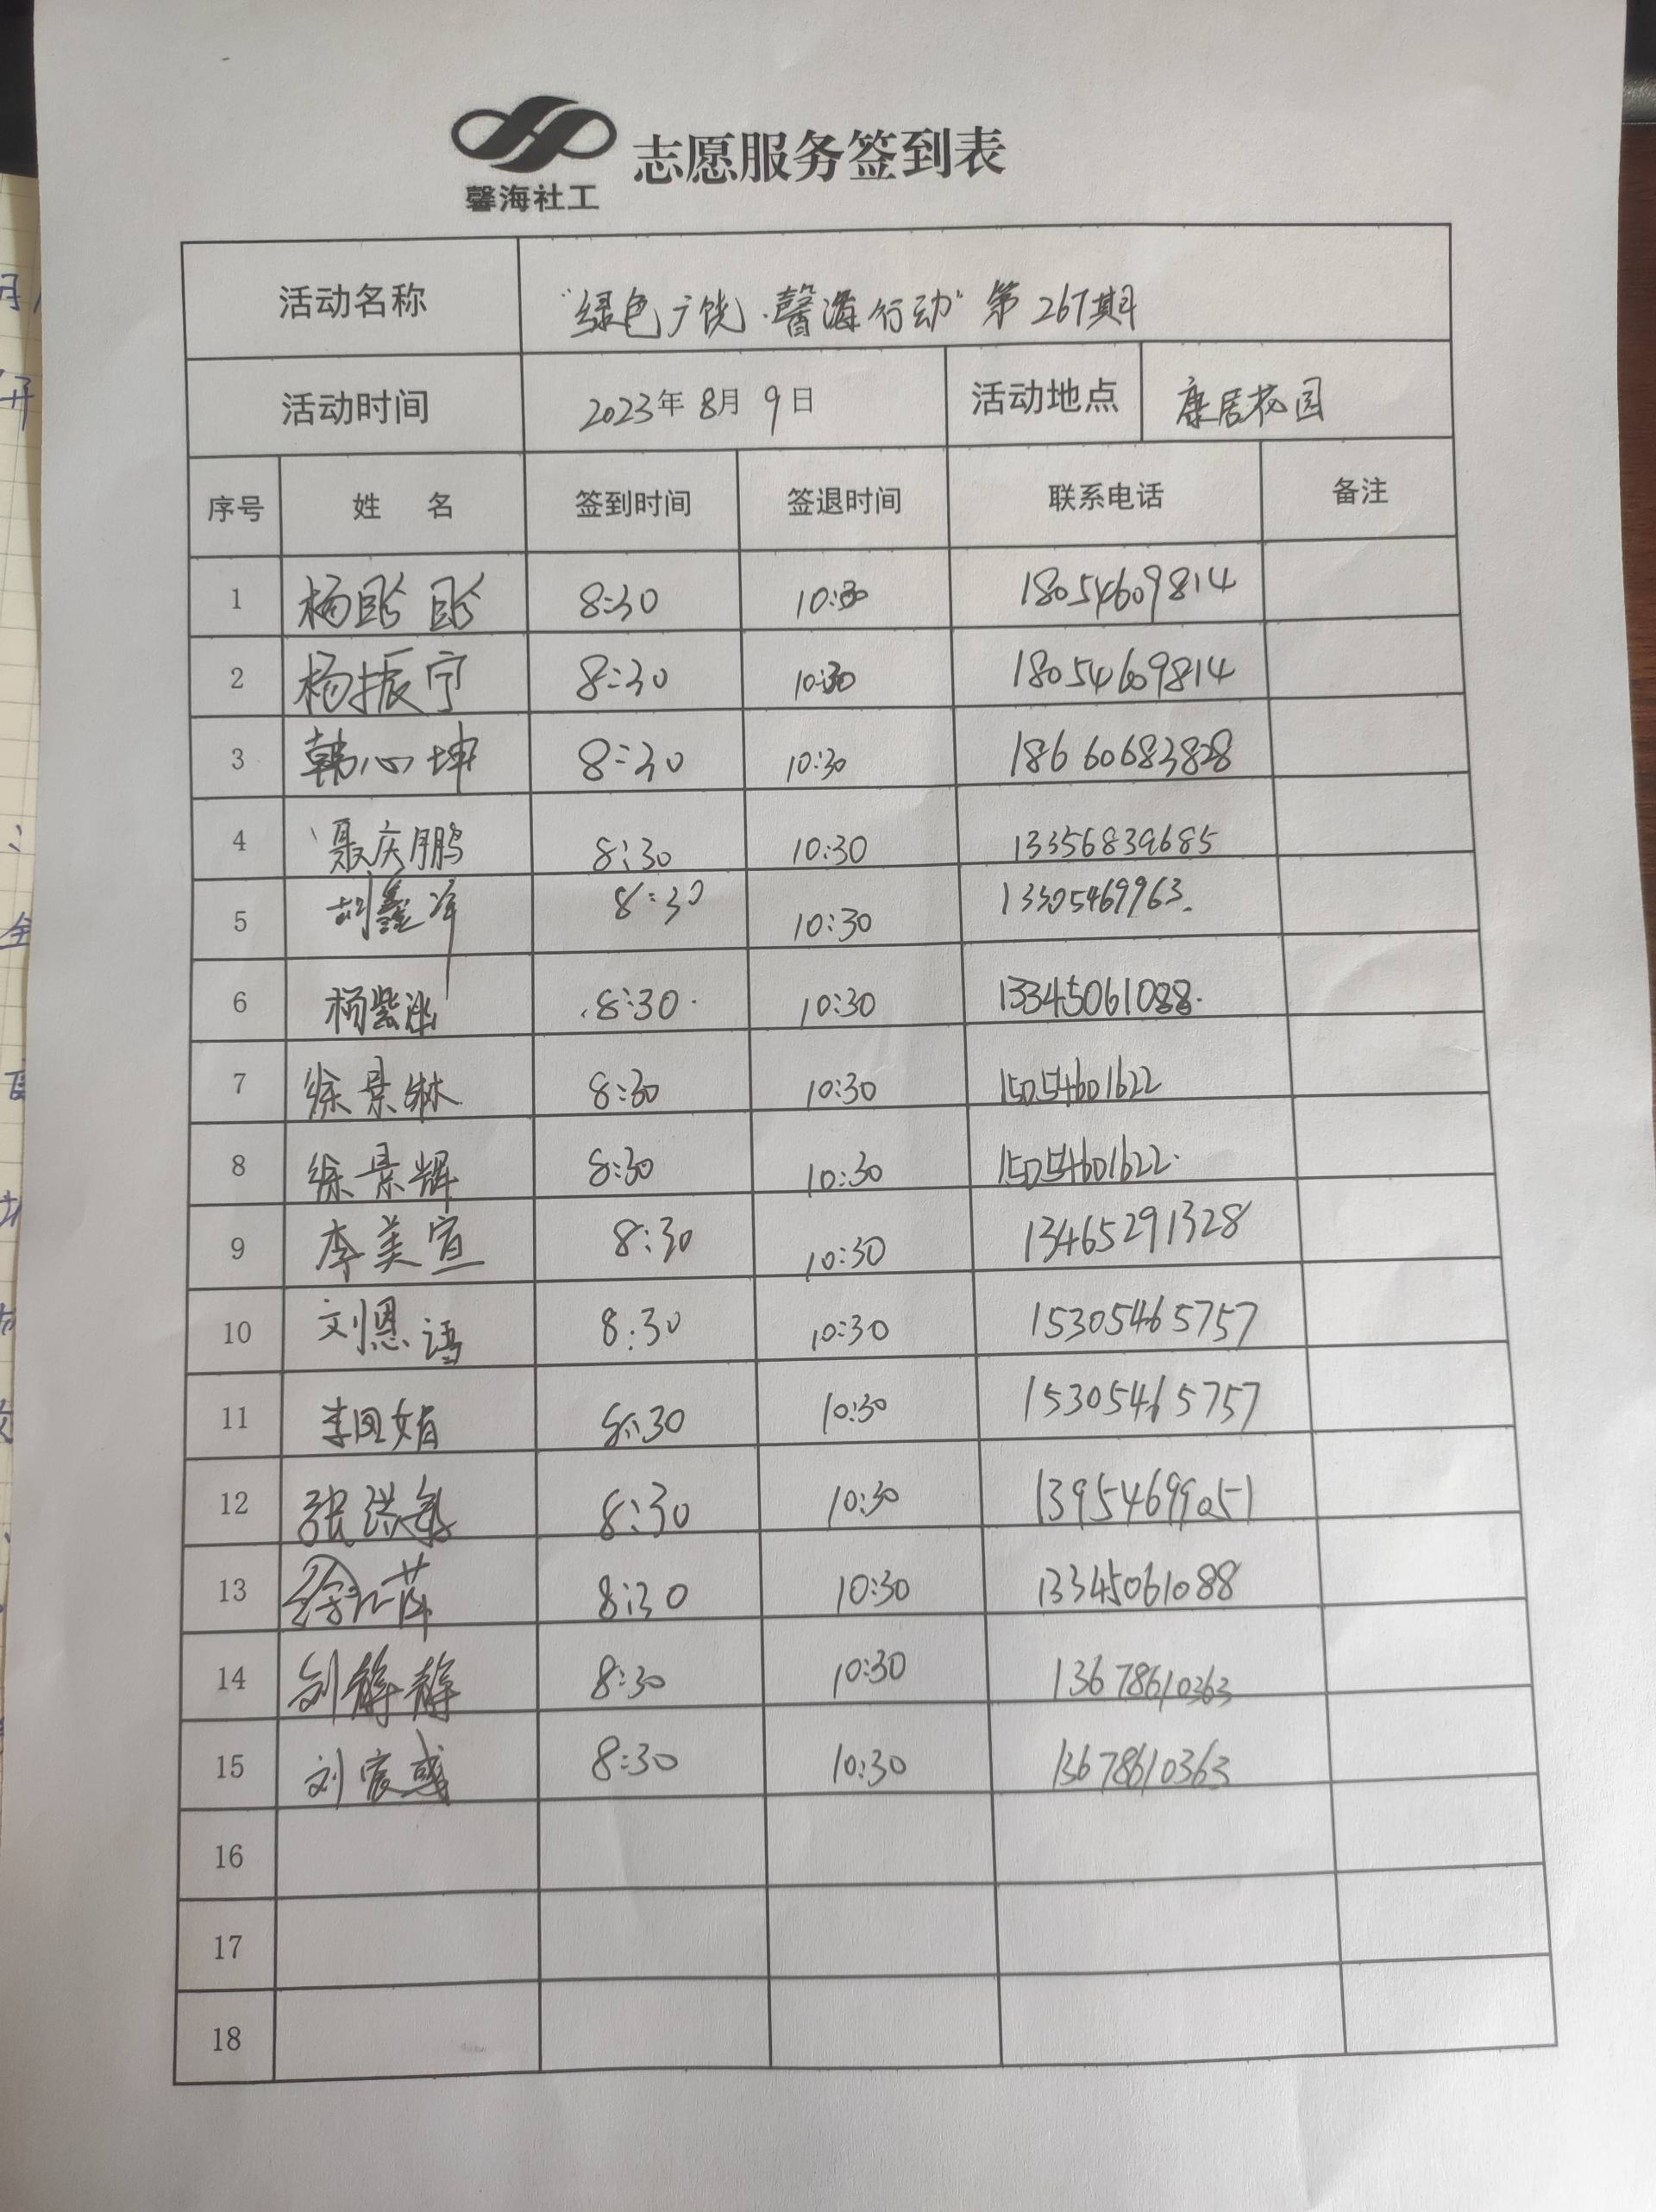 馨海社工
志愿服务签到表
活动名称 "绿色广饶·馨海行动" 第267期
活动时间 2023年8月9日 活动地点 康居花园
序号 姓 名 签到时间 签退时间 联系电话 备注
1 杨 8:30 10:30 18054609814
2 杨振宁 8:30 10:30 18054609814
3 韩心坤 8:30 10:30 18660683828
4 聂庆鹏 8:30 10:30 13356839685
5 胡鑫泽 8:30 10:30 13305469963.
6 杨紫涵 8:30 10:30 13345061088.
7 徐景琳 8:30 10:30 15054601622
8 徐景辉 8:30 10:30 15054601622.
9 李美宣 8:30 10:30 13465291328
10 刘恩语 8:30 10:30 15305465757
11 李凤娟 8:30 10:30 15305465757
12 张洪敏 8:30 10:30 13954699051
13 徐江萍 8:30 10:30 13345061088
14 刘静静 8:30 10:30 13678610363
15 刘宸 8:30 10:30 13678610363
16
17
18